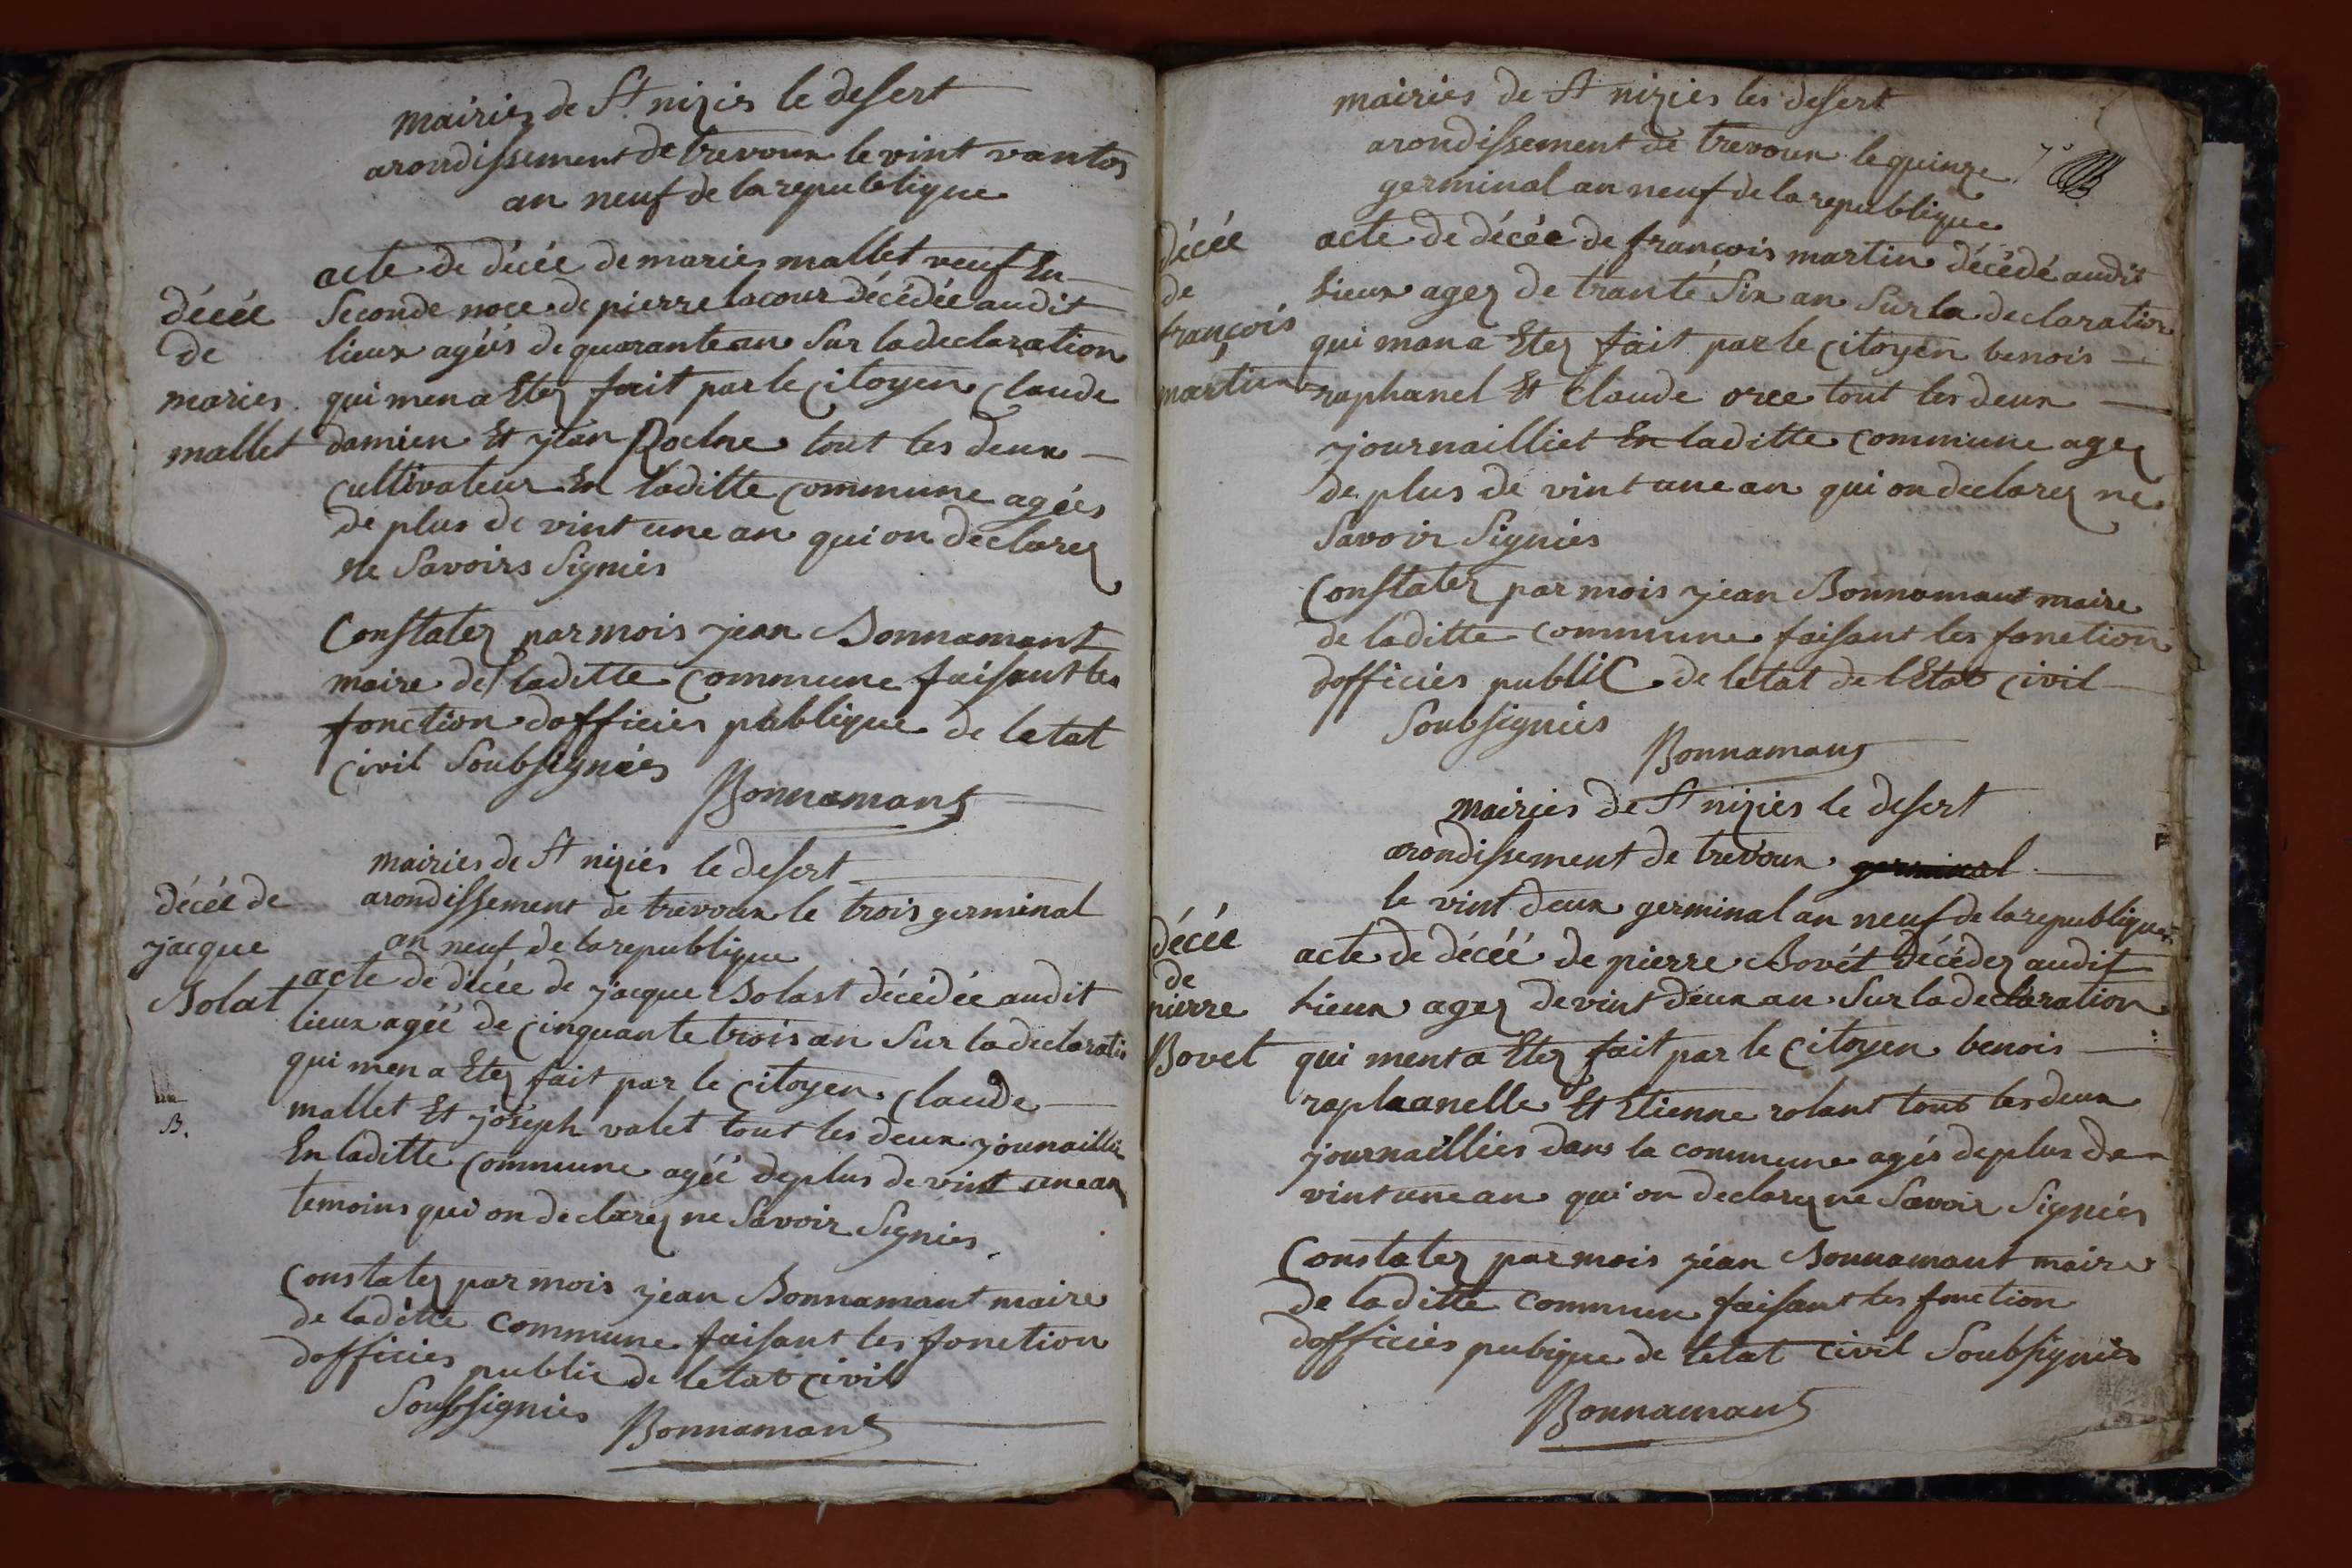 mairies de St nizies le desert
arondissement de trevoux le vint vantos
an neuf de la republique
décée
de
maries
mallet
acte de décée de maries mallet veuf En
Seconde noce de pierre lacour décédée audit
lieux agéés de quarante an Sur la declaration
qui men a Etez fait par le Citoyen Claude
damien Et jean Roche tout les deux
Cultivateur En laditte Commune agéés
de plus de vint une an qui on declarez
ne Savoirs Signies
Constatez par mois jean Bonnamant
maire de laditte Commune faisant les
fonction dofficies publique de letat
Civil Soubsignées
Bonnamant
mairies de St nizies le desert
arondissement de trevoux le trois germinal
an neuf de la republique
décée de
jacque
Bolat
acte de décée de jacque Bolast décédée audit
lieux agéé de Cinquante trois an Sur la declaratio
qui men a Etez fait par le Citoyen Claude
mallet Et joseph valet tout les deux jounaillie
En laditte Commune agéé de plus de vint une an
temoins qui on declarez ne Savoir Signies
B.
Constatez par mois jean Bonnamant maire
de laditte Commune faisant les fonction
dofficies public de letat Civil
Soubsignies
Bonnamant
mairies de St nizies les desert
arondissement de trevoux le quinze
germinal an neuf de la republique
décée
de
françois
martin
acte de décée de françois martin décédé audit
Lieux agez de trante Six an Sur la declaration
qui man a Etez fait par le Citoyen benois
raphanel Et Claude oree tout les deux
journailliet En laditte Commune agez
de plus de vint une an qui on declarez ne
Savoir Signies
Constatez par mois jean Bonnamant maire
de laditte Commune faisant les fonction
dofficies publiC de letat de lEtat Civil
Soubsignies
Bonnamant
mairies de St nizies le desert
arondissement de trevoux germinal
le vint deux germinal an neuf de la republique
décée
de
pierre
Bovet
acte de décéé de pierre Bovét décédez audit
Lieux agez de vint deux an Sur la declaration
qui ment a Etez fait par le Citoyen benois
raphaanelle Et Etienne rolant tout les deux
journaillies dans la commune agés de plus de
vint une an qui on declarez ne Savoir Signiés
Constatez par mois jéan Bonnamant maire
de laditte Commun faisant les fonction
dofficiés pubique de letat Civil Soubsigniés
Bonnamant